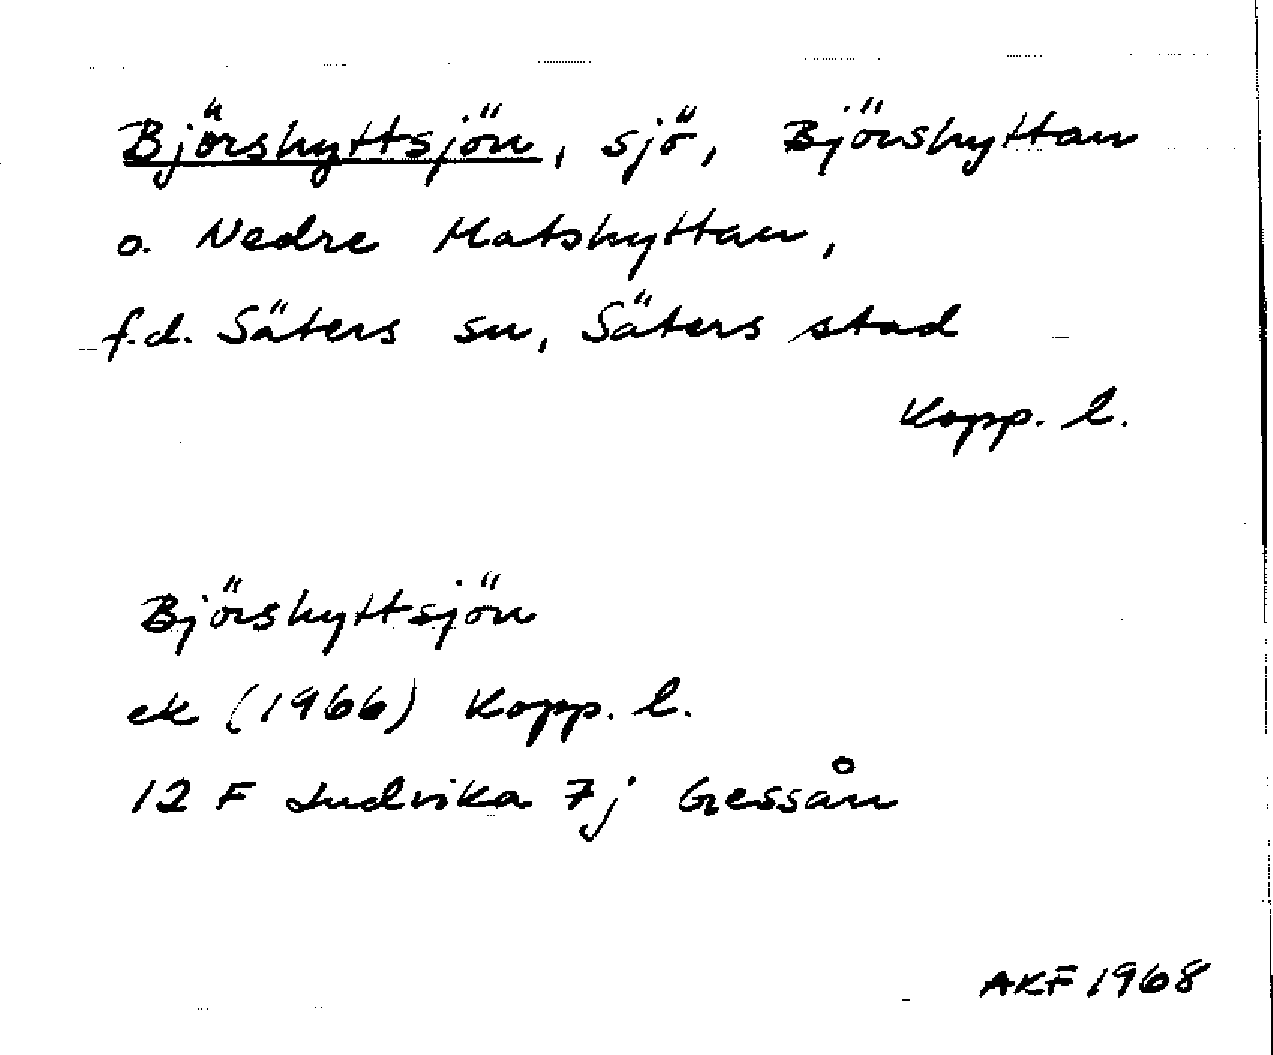 Björshyttsjön, sjö, Björshyttan
o. Nedre Matshyttan,
f.d. Säters sn, Säters stad
Kopp. l.
Björshyttsjön
ek (1966) Kopp. l.
12 F Ludvika 7j Gessån
AKF 1968